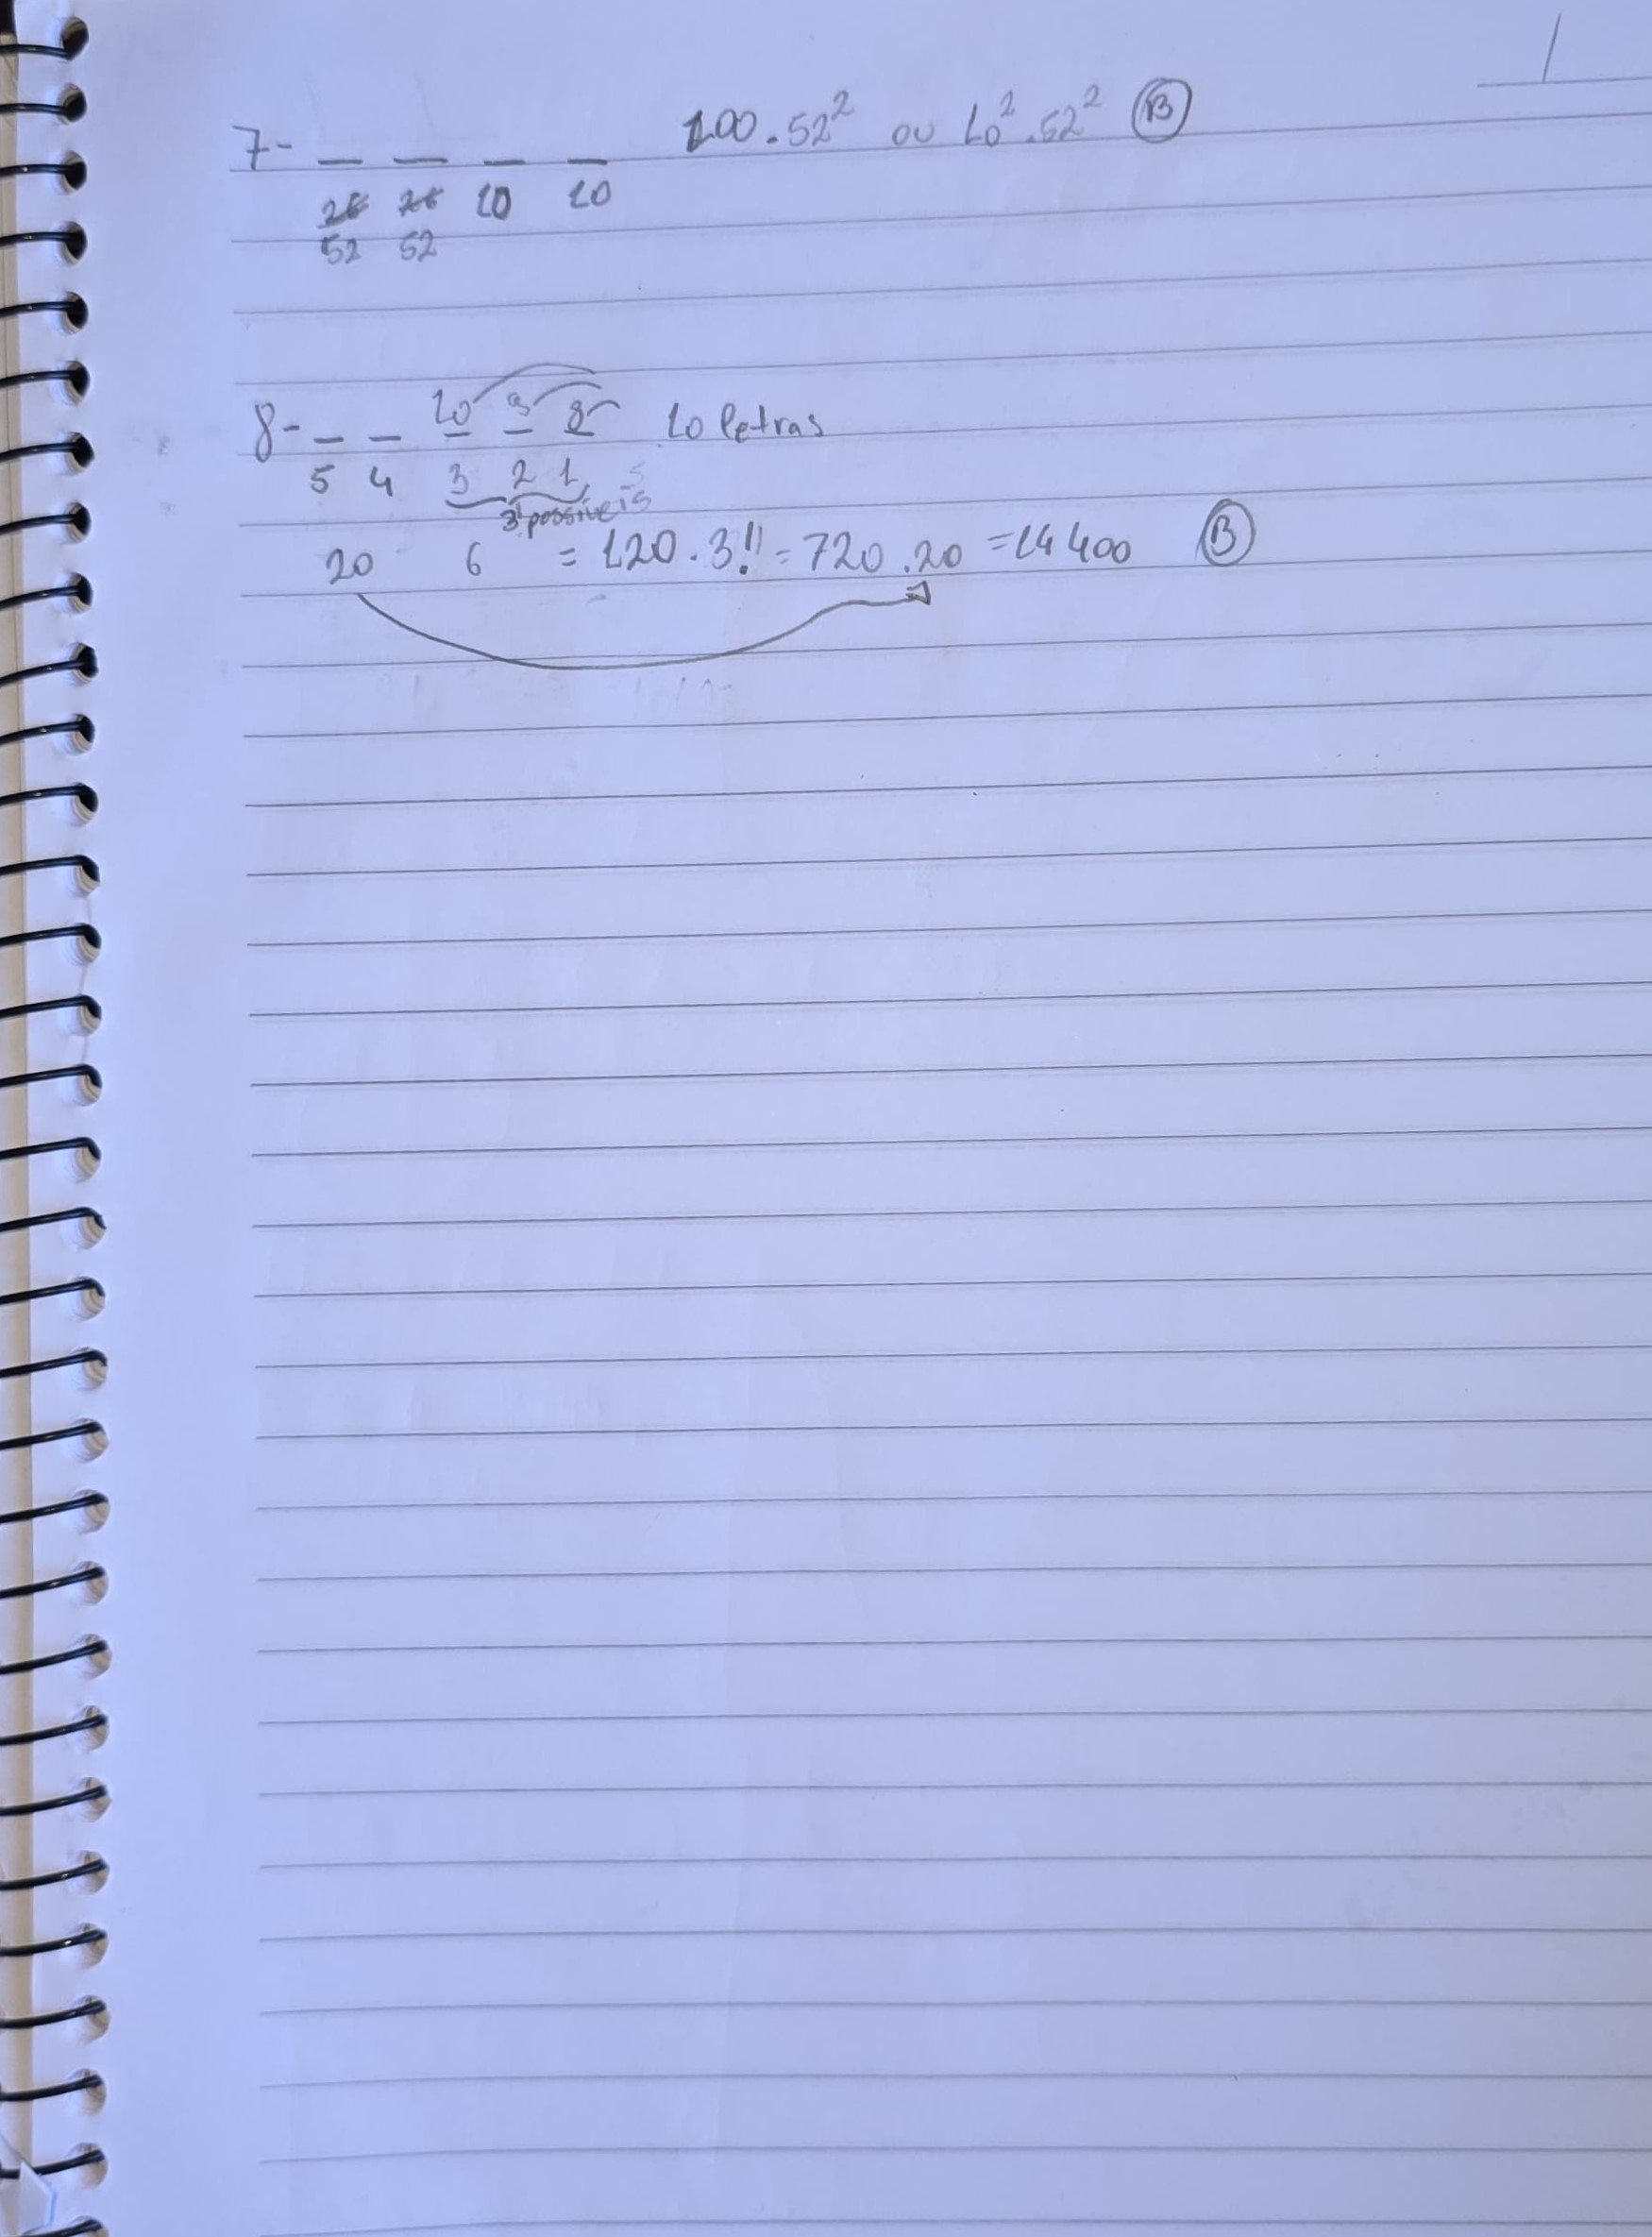 7- _ _ _ _ 100.52² ou 10².52² (B)
26 26 10 10
52 52
10 9 8
8- _ _ _ _ _ 10 letras
5 4 3 2 1
3 possíveis
20 6 = 120.3!! = 720.20 = 14 400 (B)